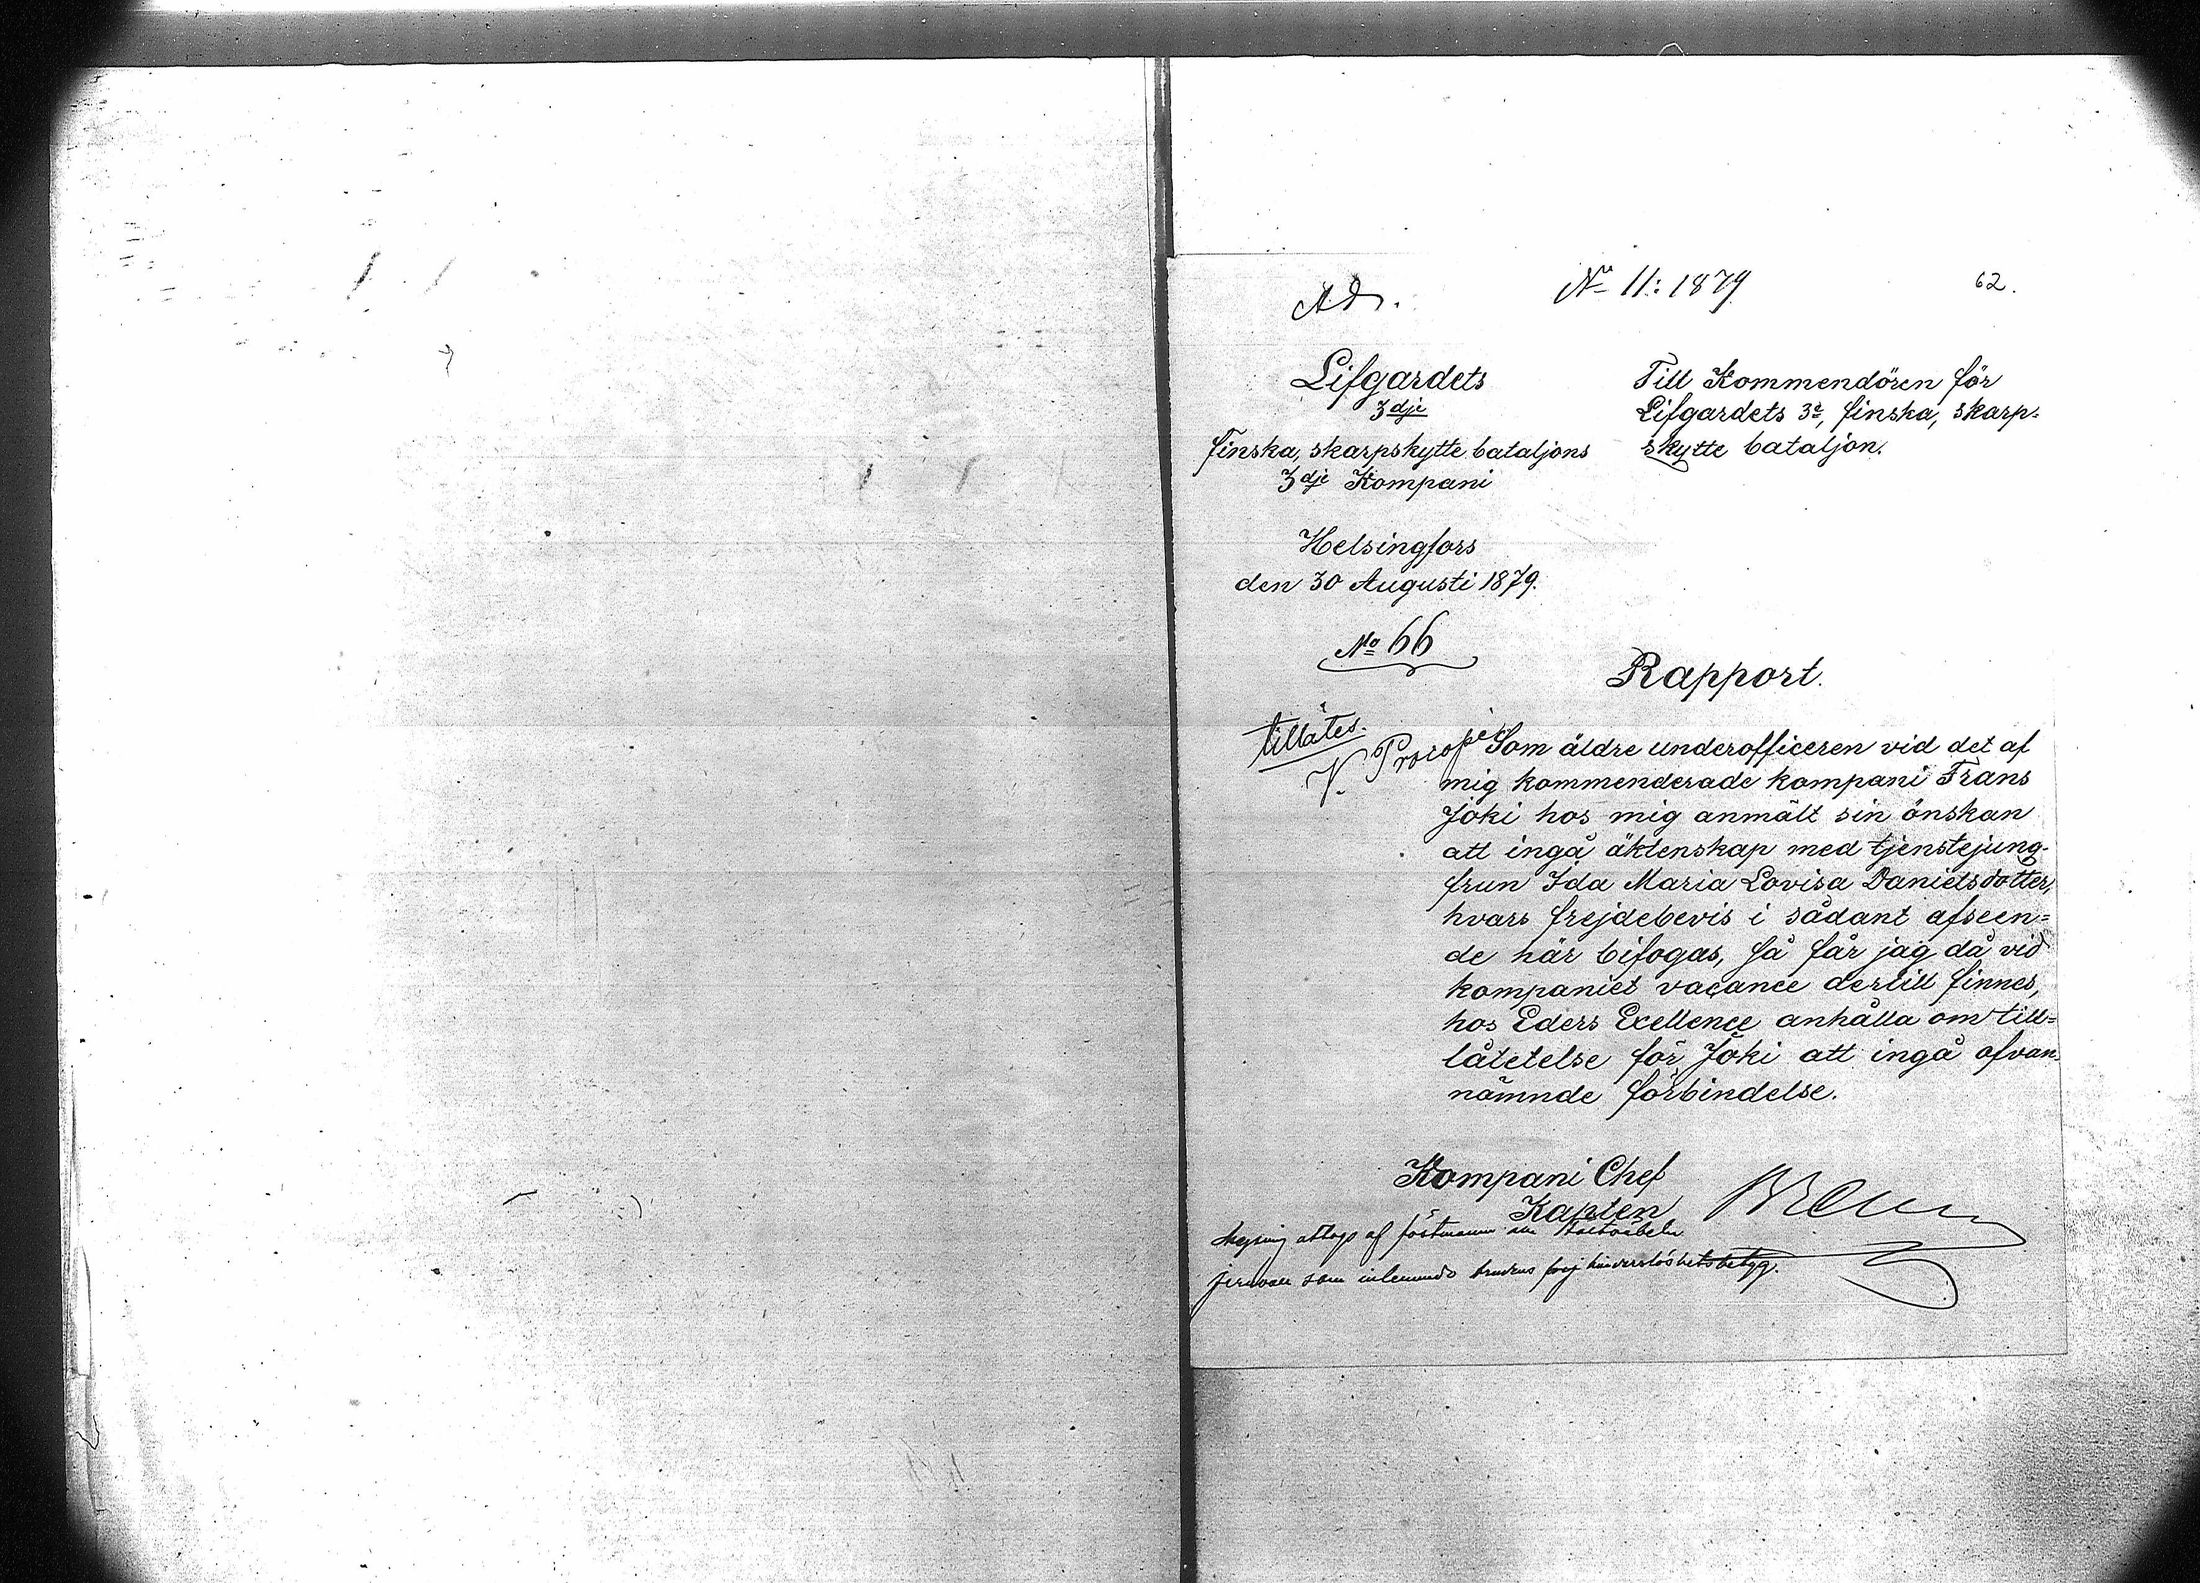 Ad.
No 11: 1879
62.
Lifgardets
3dje
finska, skarpskytte bataljons
3dje Kompani
Till Kommendören för
Lifgardets 3e, finska, skarp=
skytte bataljon.
Helsingfors
den 30 Augusti 1879.
No 66
Rapport.
tillåtes.
V. Procopé
Som äldre underofficeren vid det af
mig kommenderade kompani Frans
Joki hos mig anmält sin önskan
att ingå äktenskap med tjenstejung-
frun Ida Maria Lovisa Danielsdotter,
hvars frejdebevis i sådant afseen=
de här bifogas, så får jag då vid
kompaniet vacance dertill finnes,
hos Eders Exellence anhålla om till=
låtetelse för Joki att ingå ofvan=
nämnde förbindelse.
Kompani Chef
Kapten
lysning uttogs af fästmannen
som inlemnade brudens hinderslöshetsbetyg.